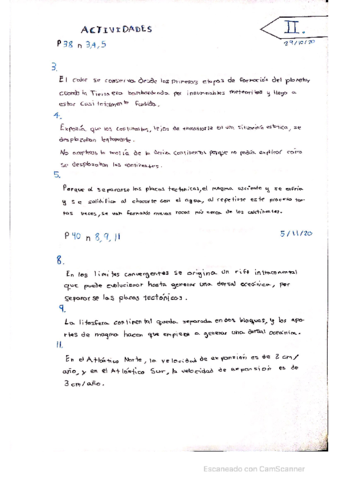 ACTIVIDADES
II.
P38 n 3,4,5
3.
El calor se conserva desde las primeras etapas de formación del planeta,
cuando la Tierra era bombardeada por innumerables meteoritos y llegó a
estar casi totalmente fundida.
4.
Exponía que los continentes, lejos de mantenerse en un sistema estático, se
desplazaban lentamente.
No aceptaron la teoría de la deriva continental porque no podía explicar cómo
se desplazaban los continentes.
5.
Porque al separarse las placas tectónicas, el magma asciende y se enfría
y se solidifica al chocarse con el agua, al repetirse este proceso tan-
tas veces, se van formando nuevas rocas más cerca de los continentes.
P40 n 8,9,11
5/11/20
8.
En los límites convergentes se origina un rift intracontinental
que puede evolucionar hasta generar una dorsal oceánica, por
separarse las placas tectónicas.
9.
La litosfera continental queda separada en dos bloques, y los apor-
tes de magma hacen que empiece a generar una dorsal oceánica.
11.
En el Atlántico Norte, la velocidad de expansión es de 2 cm/
año, y en el Atlántico Sur, la velocidad de expansión es de
3 cm/año.
Escaneado con CamScanner